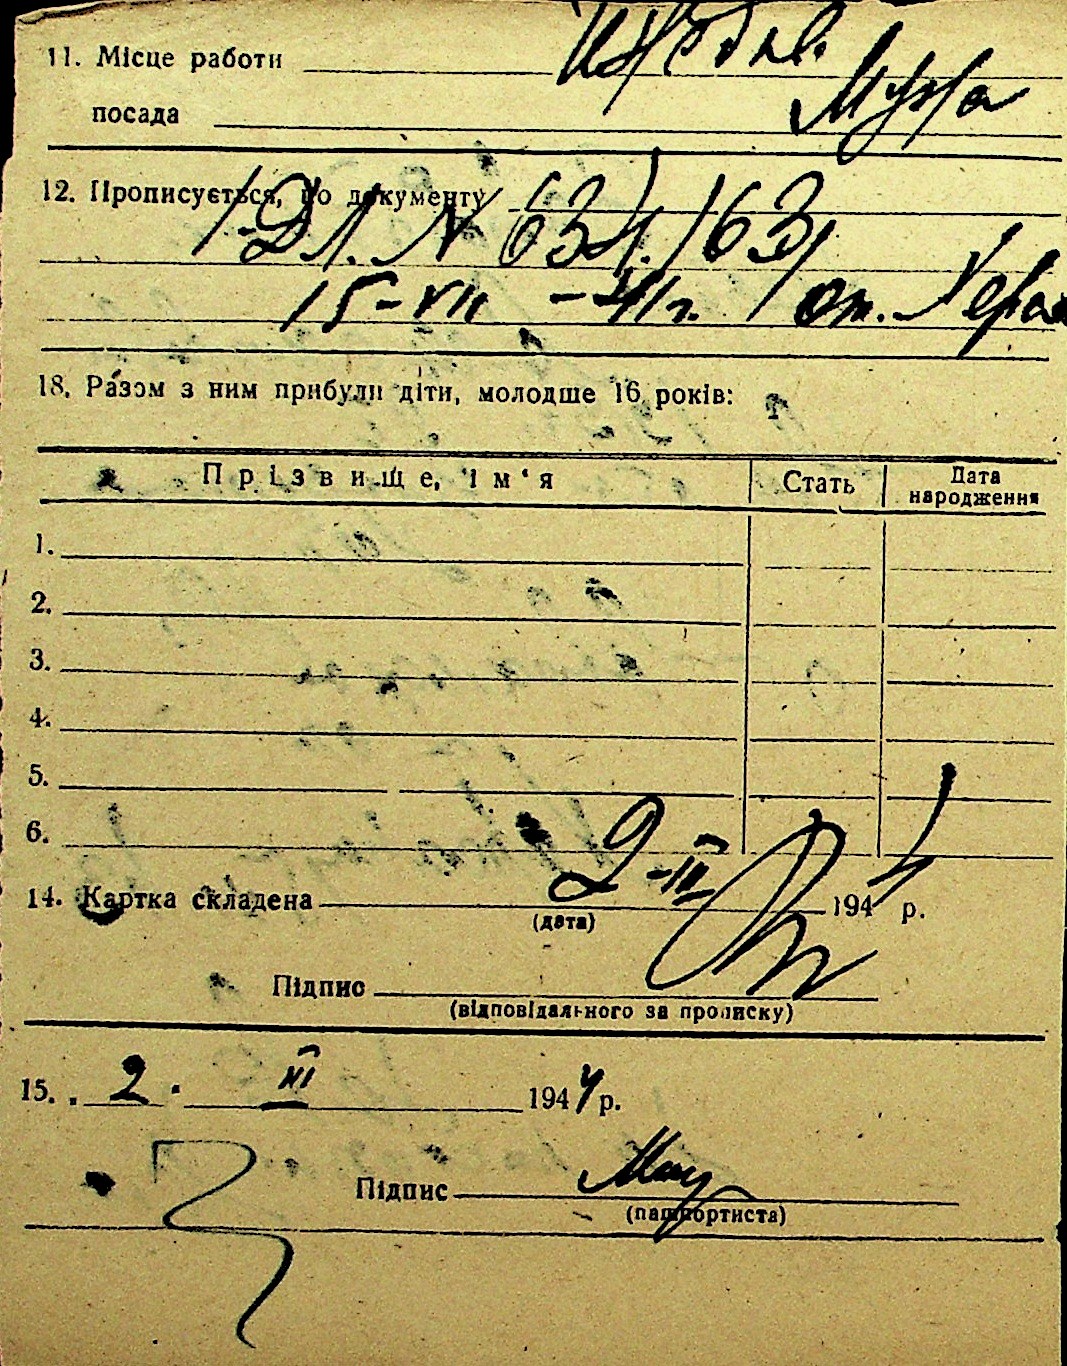 11. Місце работи Иждив.
посада Мужа
12. Прописується, по документу
15-VII -41г. от.
18. Разом з ним прибули діти, молодше 16 років:
Прізвище, ім'я Стать Дата народження
1.
2.
3.
4.
5.
6.
14. Картка складена 2-III 1944 р.
(дата)
Підпис
(відповідального за прописку)
15. 2. III 1944 р.
Підпис
(паспортиста)